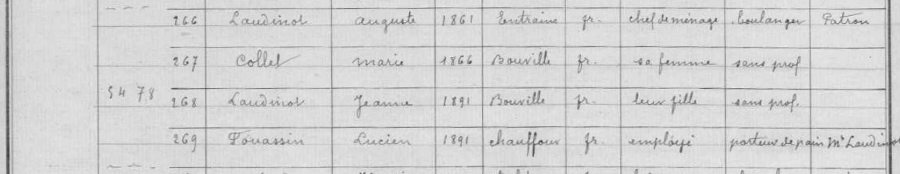 266 Laudinot auguste 1861 Entraine fr. chef de ménage boulanger Patron
267 Collet marie 1866 Bouville fr. sa femme sans prof
54 78 268 Laudinot Jeanne 1891 Bouville fr. leur fille sans prof.
269 Fouassin Lucien 1891 chauffour fr. employé porteur de pain Mr Laudinot